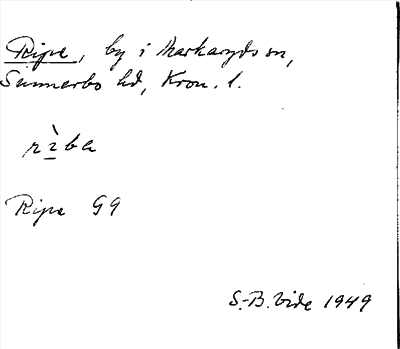 Ripe, by i Markaryds sn,
Sunnerbo hd, Kron. l.
rìba
Ripe G9
S.-B. Vide 1949